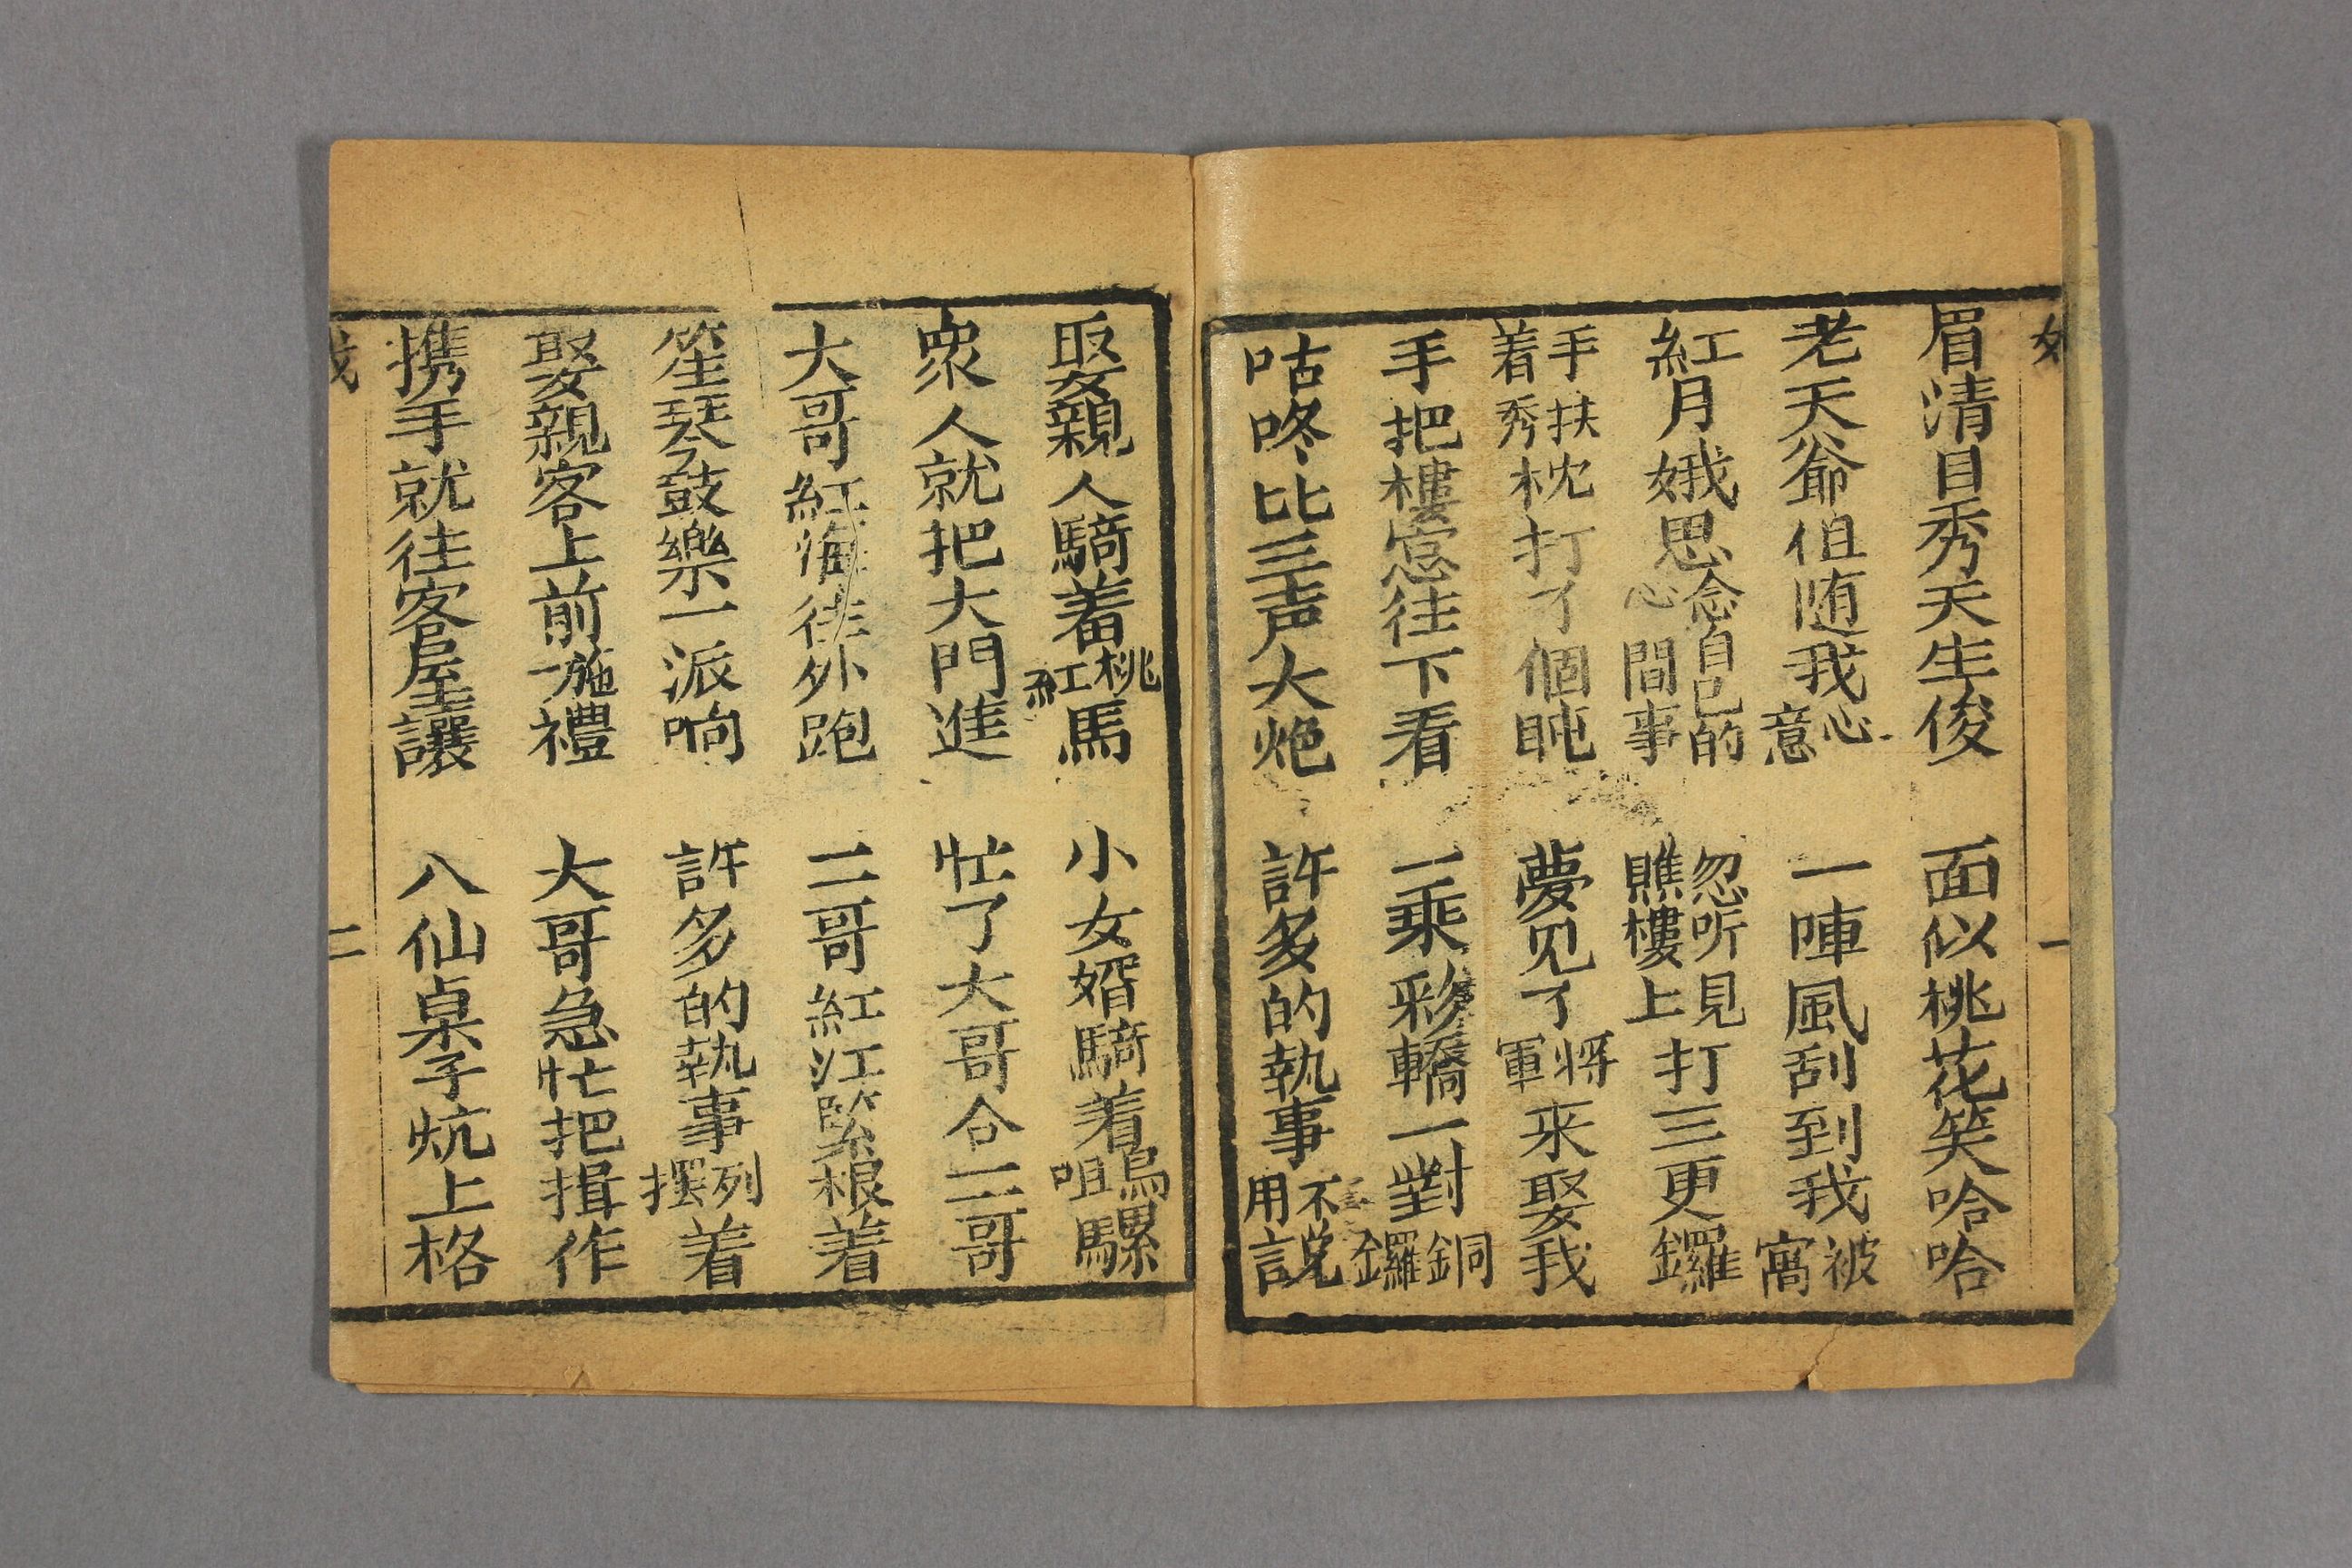 眉清目秀天生俊 面似桃花笑哈哈
老天爺但随我心意 一陣風刮到我被窩
紅月娥思念自己的心間事 忽听見瞧樓上打三更鑼
手扶着秀枕打了個盹 夢见了将軍来娶我
手把樓窓往下看 一乘彩轎一對銅鑼
咕咚比三声大炮 許多的執事不用説
娶親人騎着桃紅馬 小女婿騎着烏咀騾
衆人就把大門進 忙了大哥合二哥
大哥紅海往外跑 二哥紅江緊根着
笙琴鼓樂一派响 許多的執事列摆着
娶親客上前施一禮 大哥急忙把揖作
携手就往客屋讓 八仙桌子炕上格
二